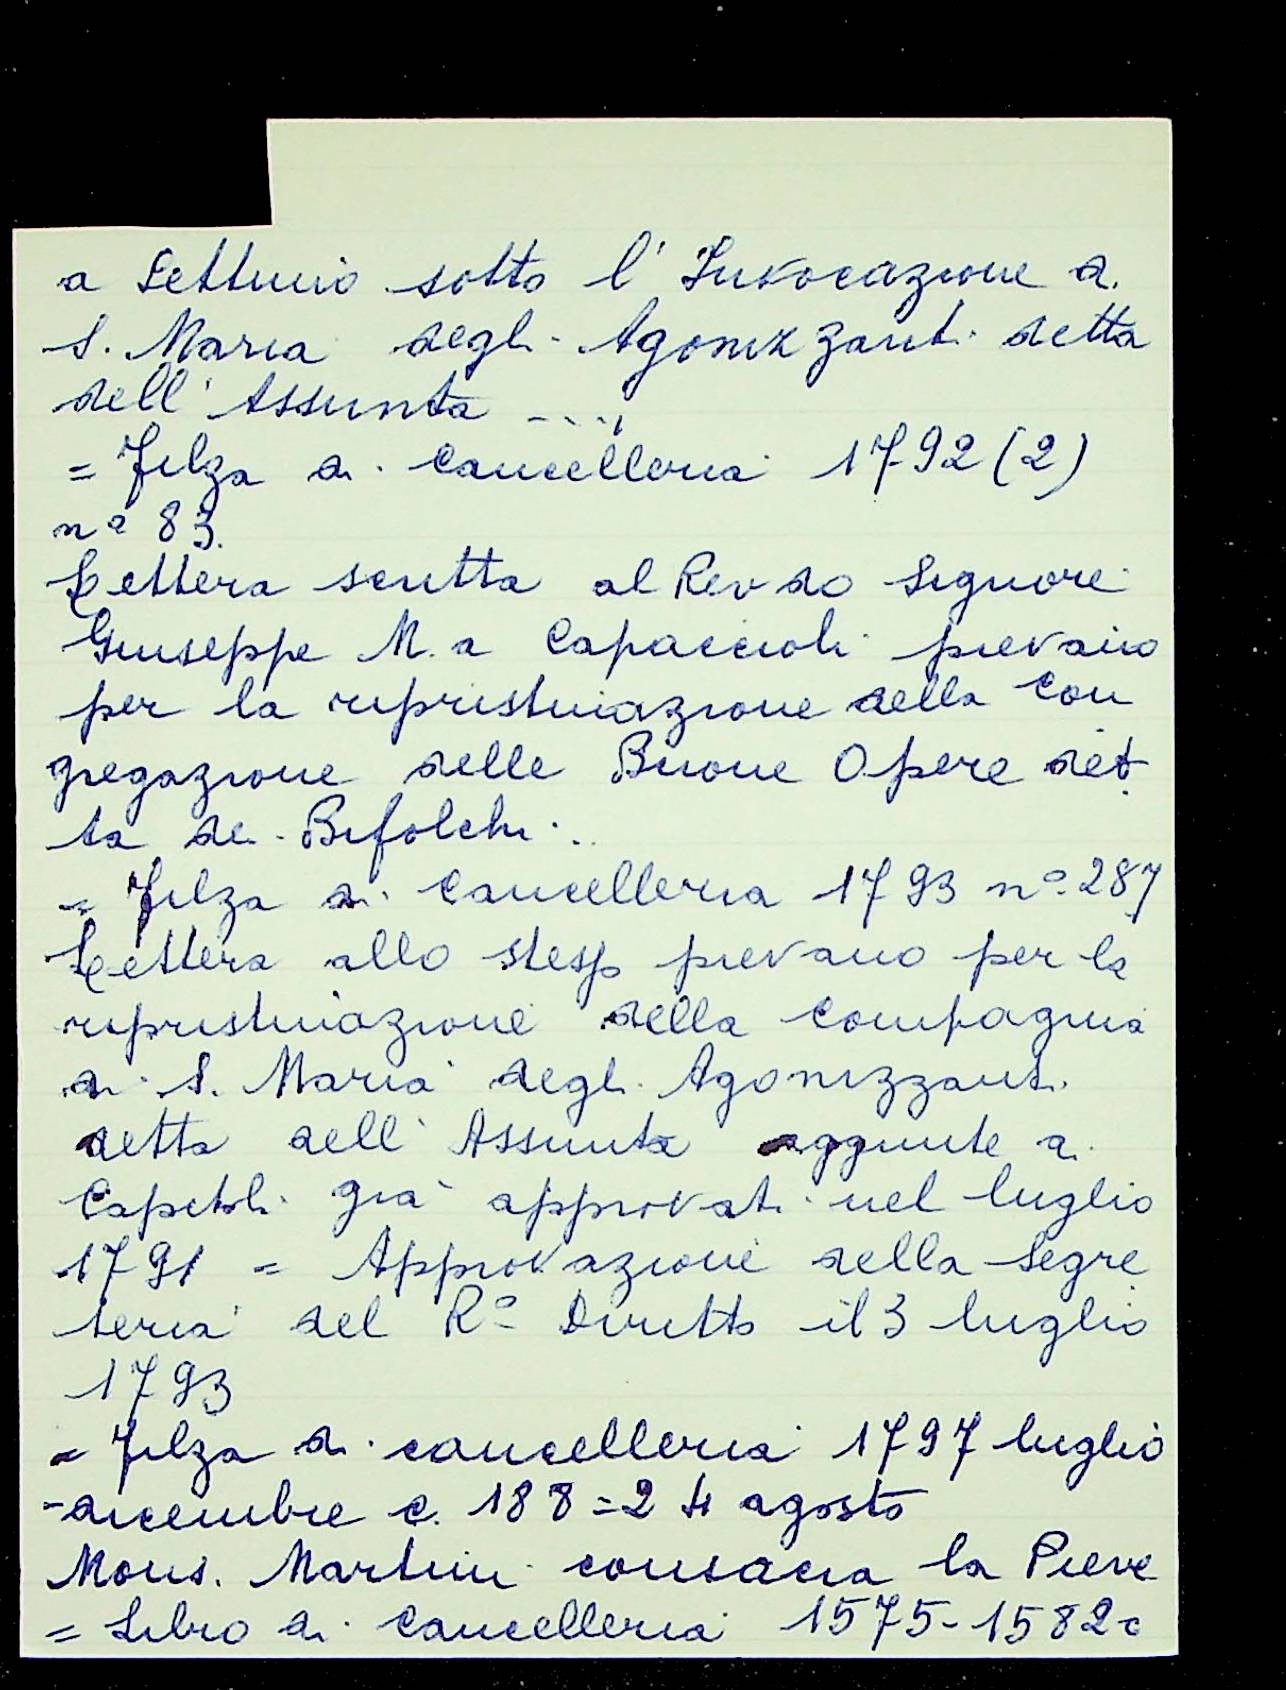 a Settimio sotto l'Invocazione di
S. Maria degli Agonizzanti detta
dell'Assunta ....
= Filza di cancelleria 1792 (2)
nº 83.
Lettera scritta al Revdo Signore
Giuseppe M.a Capaccioli pievano
per la ripristinazione della Con
gregazione delle Buone Opere det
ta dei Bifolchi ..
= Filza di cancelleria 1793 nº 287
Lettera allo stesso pievano per la
ripristinazione della Compagnia
di S. Maria degli Agonizzanti
detta dell'Assunta aggiunte ai
Capitoli già approvati nel luglio
1791 = Approvazione della Segre
teria del Rº Diritto il 3 luglio
1793
= Filza di cancelleria 1797 luglio
-dicembre c. 188 = 24 agosto
Mons. Martini consacra la Pieve
= Libro di Cancelleria 1575-1582 c